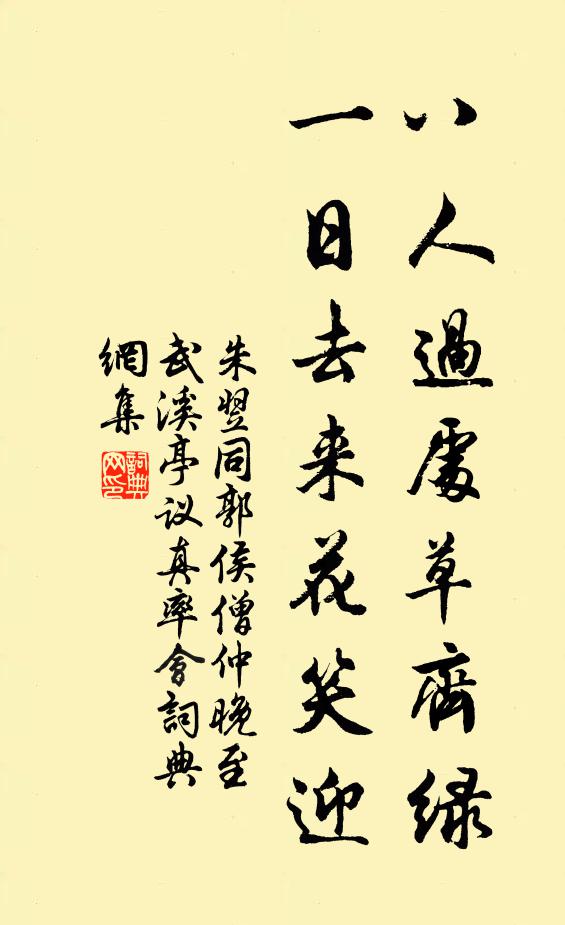 八人過處草齊緑
一日去来花笑迎
朱翌同郭侯僧仲晚至
武溪亭议真率會詞典
網集
詞典
网印